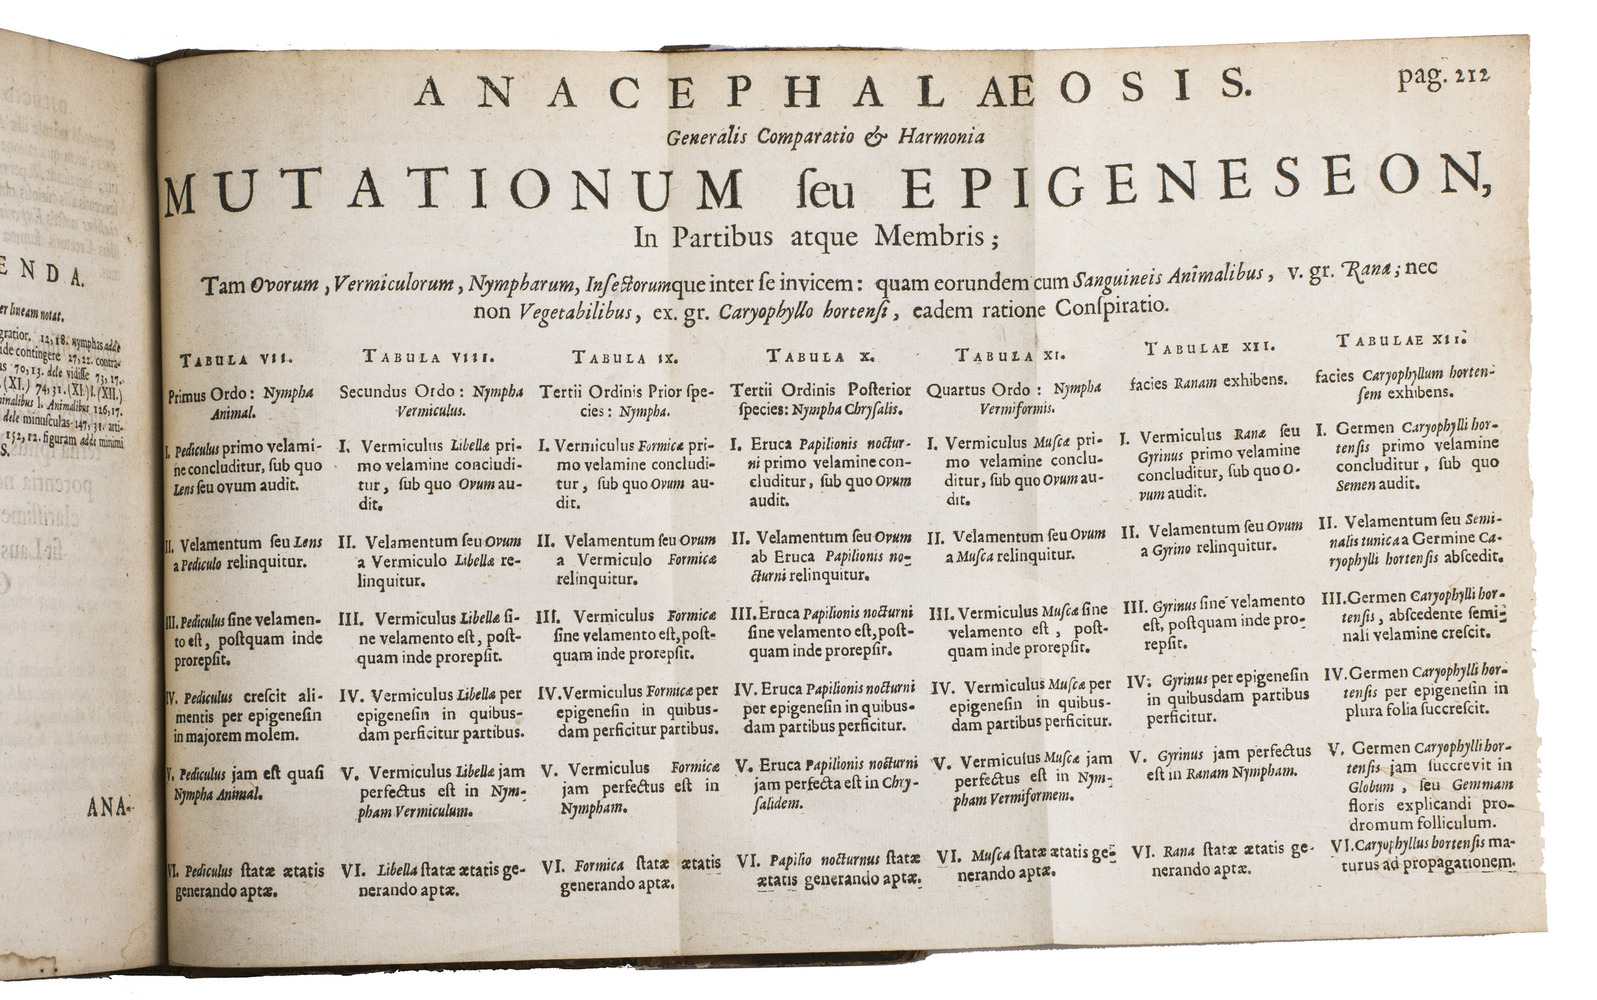 ENDA.
er lineam notat.
gratior. 12,18. nymphas adde
de contingere 27,22. contra-
as 70,13. dele vidiſſe 73,17.
(XI.) 74,31. (XI.)l.(XII.)
nimalibus l. Animalibus 126,17.
dele minuſculas 147,31. arti-
152,12. figuram adde minimi
S.
ANA-
pag. 212
ANACEPHALÆOSIS.
Generalis Comparatio & Harmonia
MUTATIONUM ſeu EPIGENESEON,
In Partibus atque Membris;
Tam Ovorum, Vermiculorum, Nympharum, Inſectorumque inter ſe invicem: quam eorundem cum Sanguineis Animalibus, v. gr. Ranæ; nec
non Vegetabilibus, ex. gr. Caryophyllo hortenſi, eadem ratione Conſpiratio.
TABULA VII.
Primus Ordo: Nympha
Animal.
I. Pediculus primo velami-
ne concluditur, ſub quo
Lens ſeu ovum audit.
II. Velamentum ſeu Lens
a Pediculo relinquitur.
III. Pediculus ſine velamen-
to eſt, poſtquam inde
prorepſit.
IV. Pediculus creſcit ali-
mentis per epigeneſin
in majorem molem.
V. Pediculus jam eſt quaſi
Nympha Animal.
VI. Pediculus ſtatæ ætatis
generando aptæ.
TABULA VIII.
Secundus Ordo: Nympha
Vermiculus.
I. Vermiculus Libellæ pri-
mo velamine concludi-
tur, ſub quo Ovum au-
dit.
II. Velamentum ſeu Ovum
a Vermiculo Libellæ re-
linquitur.
III. Vermiculus Libellæ ſi-
ne velamento eſt, poſt-
quam inde prorepſit.
IV. Vermiculus Libellæ per
epigeneſin in quibus-
dam perficitur partibus.
V. Vermiculus Libellæ jam
perfectus eſt in Nym-
pham Vermiculum.
VI. Libella ſtatæ ætatis ge-
nerando aptæ.
TABULA IX.
Tertii Ordinis Prior ſpe-
cies: Nympha.
I. Vermiculus Formicæ pri-
mo velamine concludi-
tur, ſub quo Ovum au-
dit.
II. Velamentum ſeu Ovum
a Vermiculo Formicæ
relinquitur.
III. Vermiculus Formicæ
ſine velamento eſt, poſt-
quam inde prorepſit.
IV. Vermiculus Formicæ per
epigeneſin in quibus-
dam perficitur partibus.
V. Vermiculus Formicæ
jam perfectus eſt in
Nympham.
VI. Formica ſtatæ ætatis
generando aptæ.
TABULA X.
Tertii Ordinis Poſterior
ſpecies: Nympha Chryſalis.
I. Eruca Papilionis noctur-
ni primo velamine con-
cluditur, ſub quo Ovum
audit.
II. Velamentum ſeu Ovum
ab Eruca Papilionis no-
cturni relinquitur.
III. Eruca Papilionis nocturni
ſine velamento eſt, poſt-
quam inde prorepſit.
IV. Eruca Papilionis nocturni
per epigeneſin in quibus-
dam partibus perficitur.
V. Eruca Papilionis nocturni
jam perfecta eſt in Chry-
ſalidem.
VI. Papilio nocturnus ſtatæ
ætatis generando aptæ.
TABULA XI.
Quartus Ordo: Nympha
Vermiformis.
I. Vermiculus Muſcæ pri-
mo velamine conclu-
ditur, ſub quo Ovum au-
dit.
II. Velamentum ſeu Ovum
a Muſca relinquitur.
III. Vermiculus Muſcæ ſine
velamento eſt, poſt-
quam inde prorepſit.
IV. Vermiculus Muſcæ per
epigeneſin in quibus-
dam partibus perficitur.
V. Vermiculus Muſcæ jam
perfectus eſt in Nym-
pham Vermiformem.
VI. Muſca ſtatæ ætatis ge-
nerando aptæ.
TABULAE XII.
facies Ranam exhibens.
I. Vermiculus Ranæ ſeu
Gyrinus primo velamine
concluditur, ſub quo O-
vum audit.
II. Velamentum ſeu Ovum
a Gyrino relinquitur.
III. Gyrinus ſine velamento
eſt, poſtquam inde pro-
repſit.
IV. Gyrinus per epigeneſin
in quibusdam partibus
perficitur.
V. Gyrinus jam perfectus
eſt in Ranam Nympham.
VI. Rana ſtatæ ætatis ge-
nerando aptæ.
TABULAE XII.
facies Caryophyllum horten-
ſem exhibens.
I. Germen Caryophylli hor-
tenſis primo velamine
concluditur, ſub quo
Semen audit.
II. Velamentum ſeu Semi-
nalis tunica a Germine Ca-
ryophylli hortenſis abſcedit.
III. Germen Caryophylli hor-
tenſis, abſcedente ſemi-
nali velamine creſcit.
IV. Germen Caryophylli hor-
tenſis per epigeneſin in
plura folia ſuccreſcit.
V. Germen Caryophylli hor-
tenſis jam ſuccrevit in
Globum, ſeu Gemmam
floris explicandi pro-
dromum folliculum.
VI. Caryophyllus hortenſis ma-
turus ad propagationem.